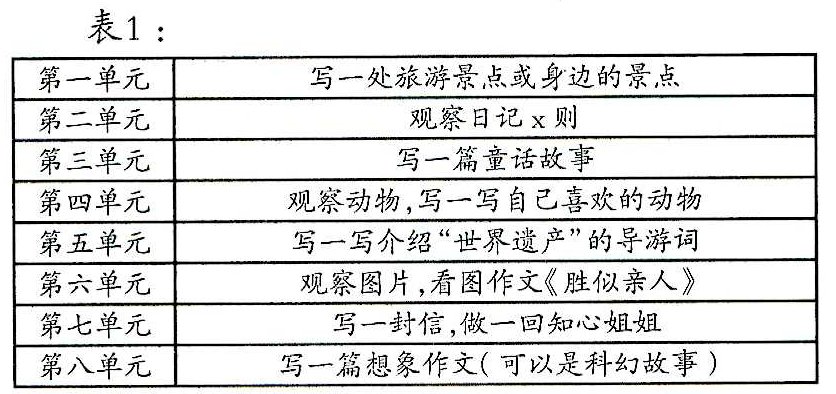 表1：
第一单元 写一处旅游景点或身边的景点
第二单元 观察日记x则
第三单元 写一篇童话故事
第四单元 观察动物,写一写自己喜欢的动物
第五单元 写一写介绍“世界遗产”的导游词
第六单元 观察图片,看图作文《胜似亲人》
第七单元 写一封信,做一回知心姐姐
第八单元 写一篇想象作文(可以是科幻故事)